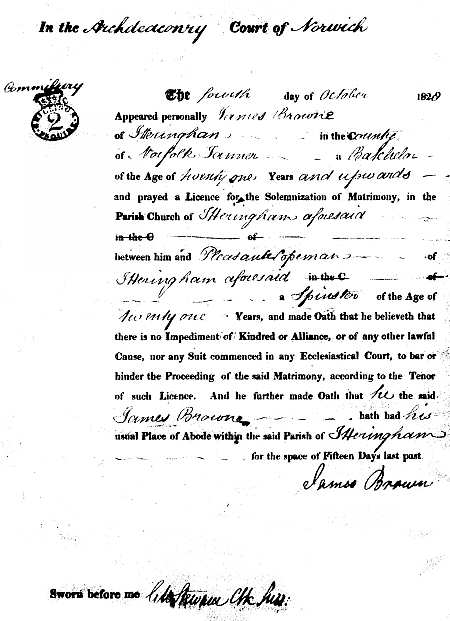 In the Archdeaconry Court of Norwich
Commissary
The fourth day of October 1829
Appeared personally James Browne
of Itteringham in the County
of Norfolk Farmer a Batchelor
of the Age of twenty one Years and upwards
and prayed a Licence for the Solemnization of Matrimony, in the
Parish Church of Itteringham aforesaid
in the C of
between him and Pleasant Popeman of
Itteringham aforesaid in the C of
a Spinster of the Age of
twenty one Years, and made Oath that he believeth that
there is no Impediment of Kindred or Alliance, or of any other lawful
Cause, nor any Suit commenced in any Ecclesiastical Court, to bar or
hinder the Proceeding of the said Matrimony, according to the Tenor
of such Licence. And he further made Oath that he the said
James Browne hath had his
usual Place of Abode within the said Parish of Itteringham
for the space of Fifteen Days last past
James Brown
Sworn before me